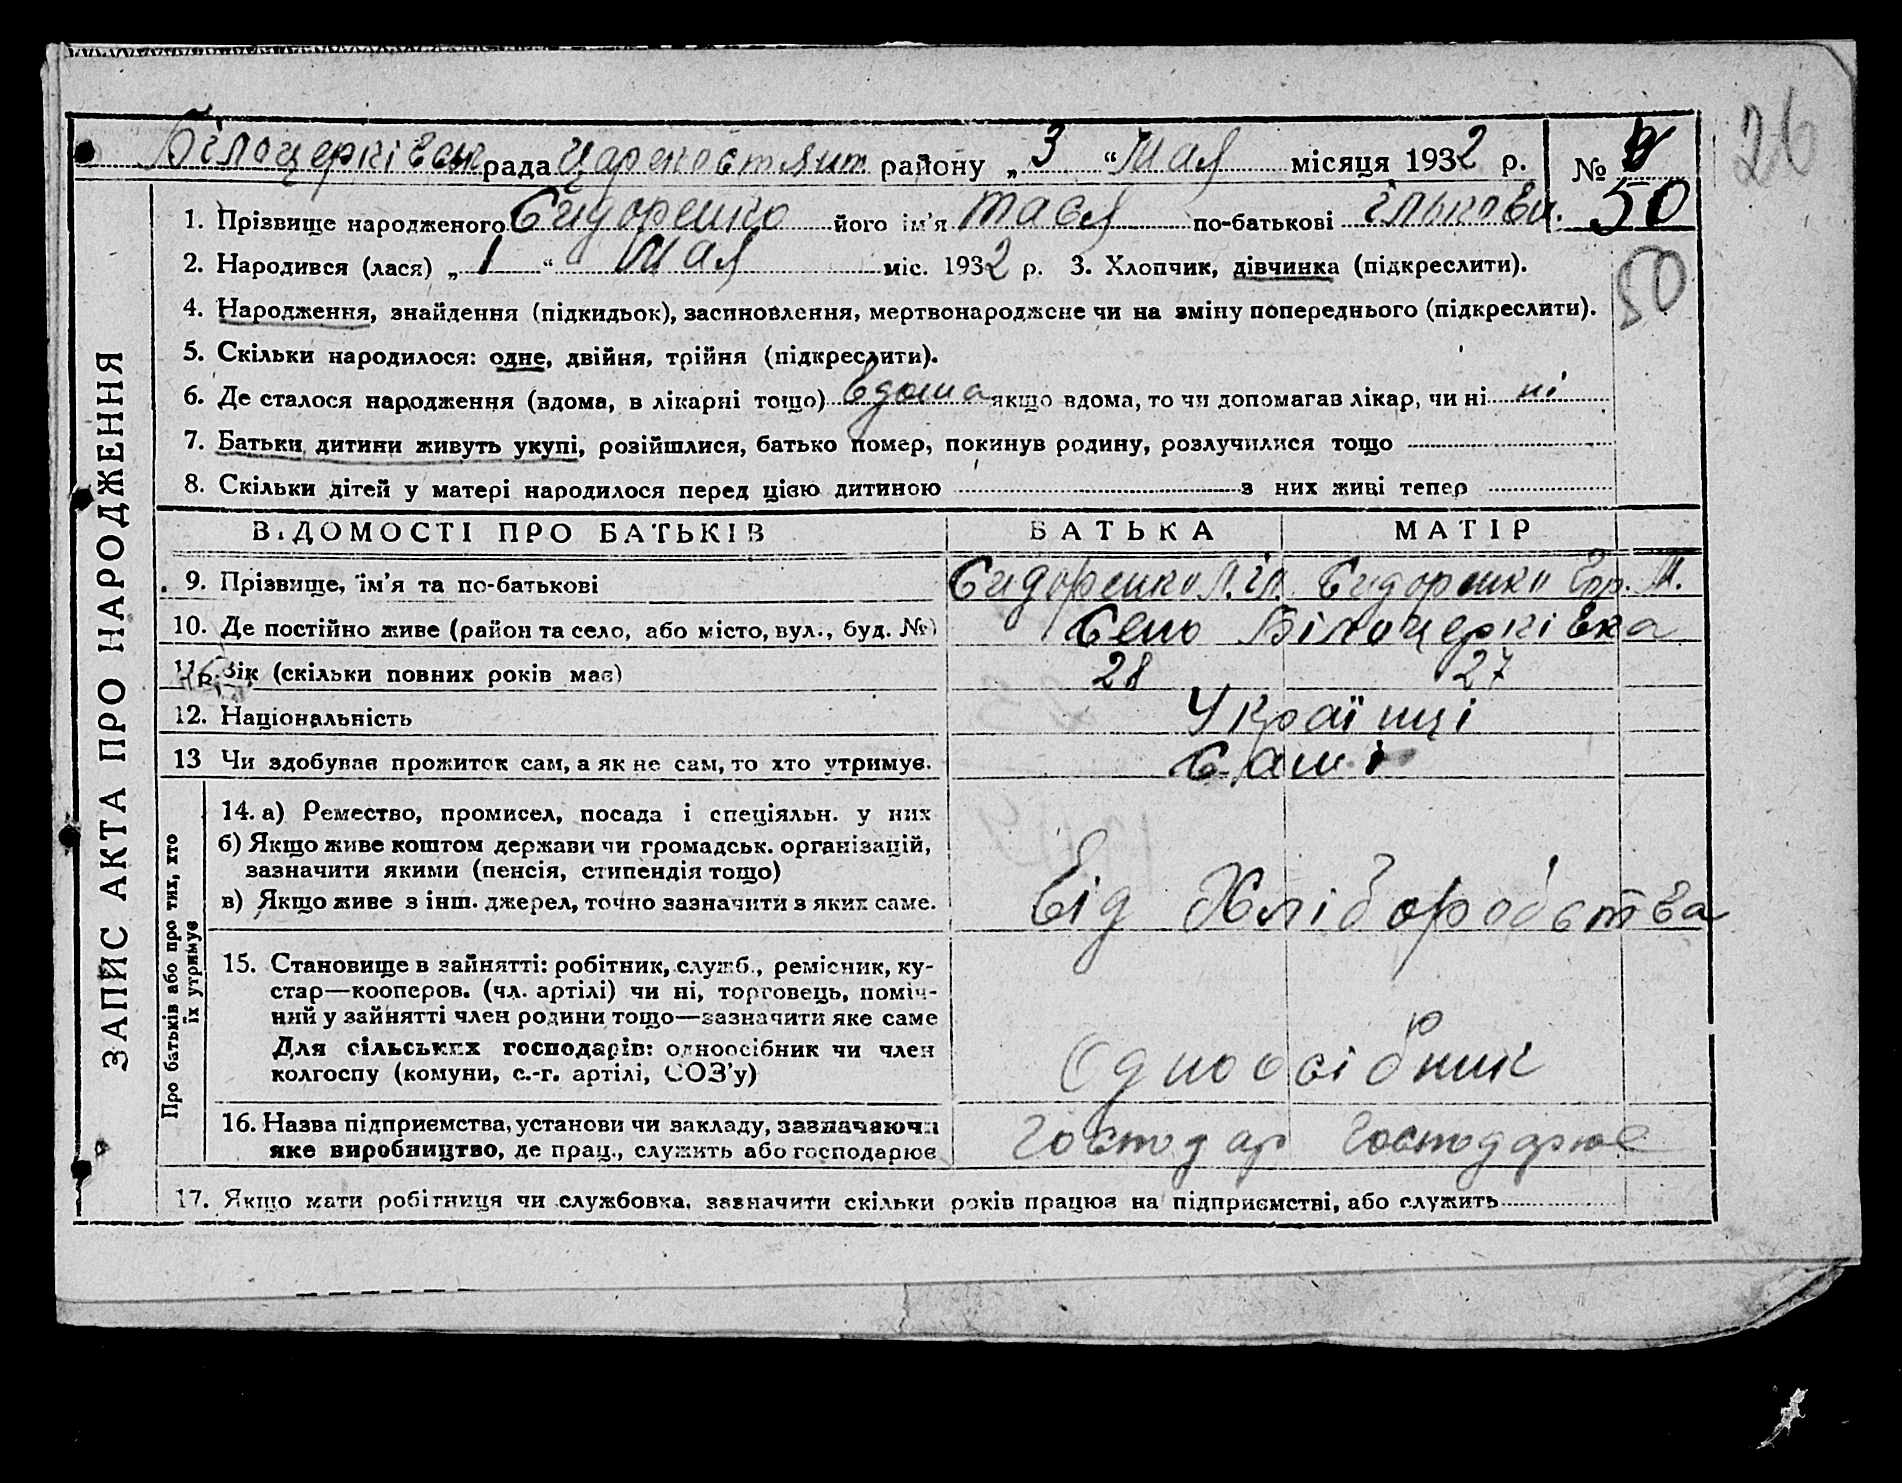 26
Білоцерківськ рада район у „3“ Мая місяця 1932 р. №
50
1. Прізвище народженого Сидоренко його ім'я Тася по-батькові Ількови.
2. Народився (лася) „1“ Мая міс. 1932 р. 3. Хлопчик, дівчинка (підкреслити).
50
4. Народження, знайдення (підкидьок), засиновлення, мертвонароджене чи на зміну попереднього (підкреслити).
5. Скільки народилося: одне, двійня, трійня (підкреслити).
6. Де сталося народження (вдома, в лікарні тощо) вдома якщо вдома, то чи допомагав лікар, чи ні ні
7. Батьки дитини живуть укупі, розійшлися, батько помер, покинув родину, розлучилися тощо
8. Скільки дітей у матері народилося перед цією дитиною з них живі тепер
ЗАПИС АКТА ПРО НАРОДЖЕННЯ
ВІДОМОСТІ ПРО БАТЬКІВ БАТЬКА МАТІР
9. Прізвище, їм'я та по-батькові Сидоренко Сидоренко М.
10. Де постійно живе (район та село, або місто, вул., буд. №) Село Білоцерківка
11. Вік (скільки повних років має) 28 27
12. Національність Українці
13 Чи здобуває прожиток сам, а як не сам, то хто утримує. Самі
Про батьків або про тих, хто
їх утримує
14. а) Ремество, промисел, посада і спеціяльн. у них
б) Якщо живе коштом держави чи громадськ. організацій,
зазначити якими (пенсія, стипендія тощо)
в) Якщо живе з інш. джерел, точно зазначити з яких саме. Від Хліборобства
15. Становище в зайнятті: робітник, служб., ремісник, ку-
стар—кооперов. (чл. артілі) чи ні, торговець, поміч-
ний у зайнятті член родини тощо—зазначити яке саме
Для сільських господарів: одноосібник чи член
колгоспу (комуни, с.-г. артілі, СОЗ'у) Одноосібник
16. Назва підприємства, установи чи закладу, зазначаючи
яке виробництво, де прац., служить або господарює Господар Господарює
17. Якщо мати робітниця чи службовка, зазначити скільки років працює на підприємстві, або служить